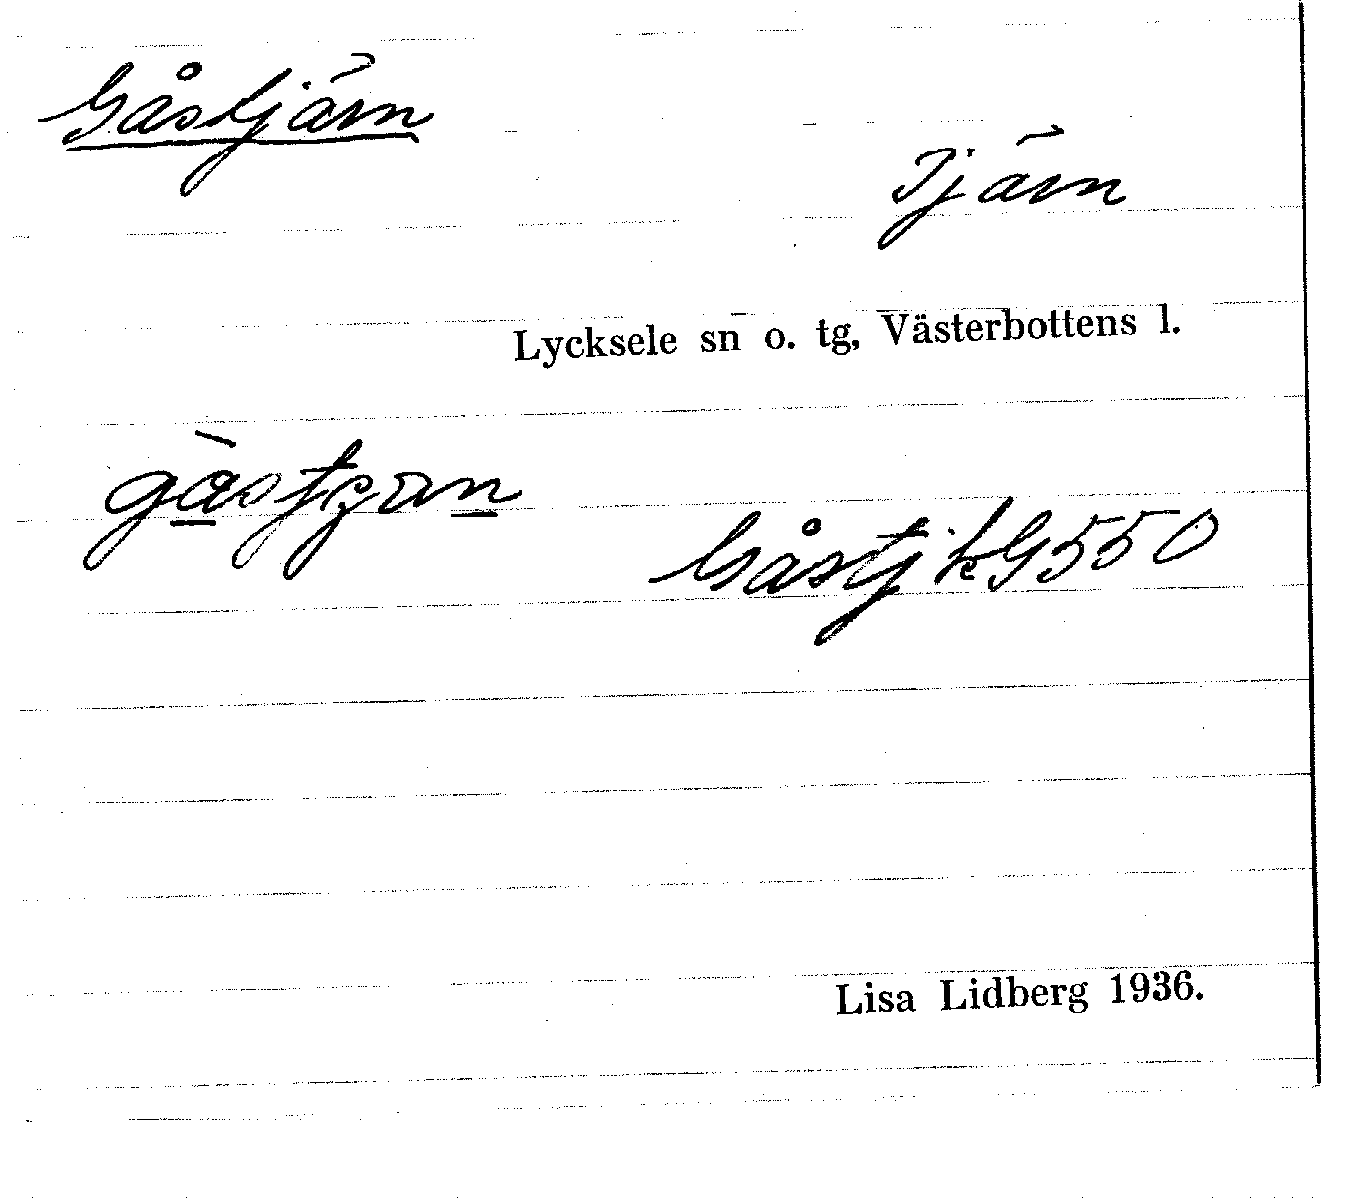 Gåstjärn
Tjärn
Lycksele sn o. tg, Västerbottens l.
Gåstj kG550
Lisa Lidberg 1936.